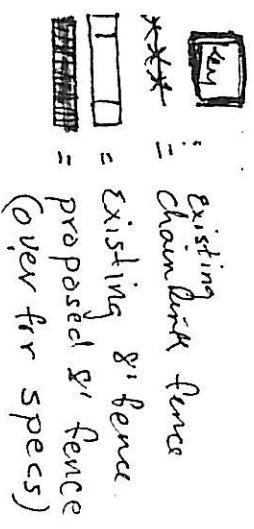 Key
*** = existing
chain link fence
= existing 8' fence
= proposed 8' fence
(over for specs)